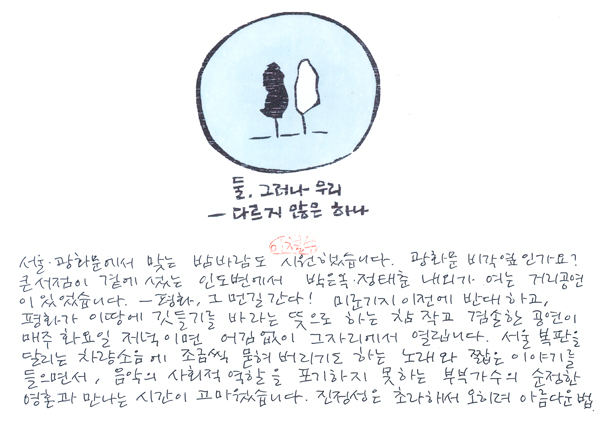 둘, 그러나 우리
― 다르지 않은 하나
이철수
서울·광화문에서 맞는 밤바람도 시원했습니다. 광화문 비각옆인가요?
큰서점이 곁에 섰는 인도변에서 박은옥·정태춘 내외가 여는 거리공연
이 있었습니다. ―평화, 그 먼길 간다! 미군기지 이전에 반대하고,
평화가 이땅에 깃들기를 바라는 뜻으로 하는 참 작고 겸손한 공연이
매주 화요일 저녁이면 어김없이 그자리에서 열립니다. 서울 복판을
달리는 차량소음에 조금씩 묻혀 버리기도 하는 노래와 짧은 이야기를
들으면서, 음악의 사회적 역할을 포기하지 못하는 부부가수의 순정한
영혼과 만나는 시간이 고마웠습니다. 진정성은 초라해서 오히려 아름다운법.